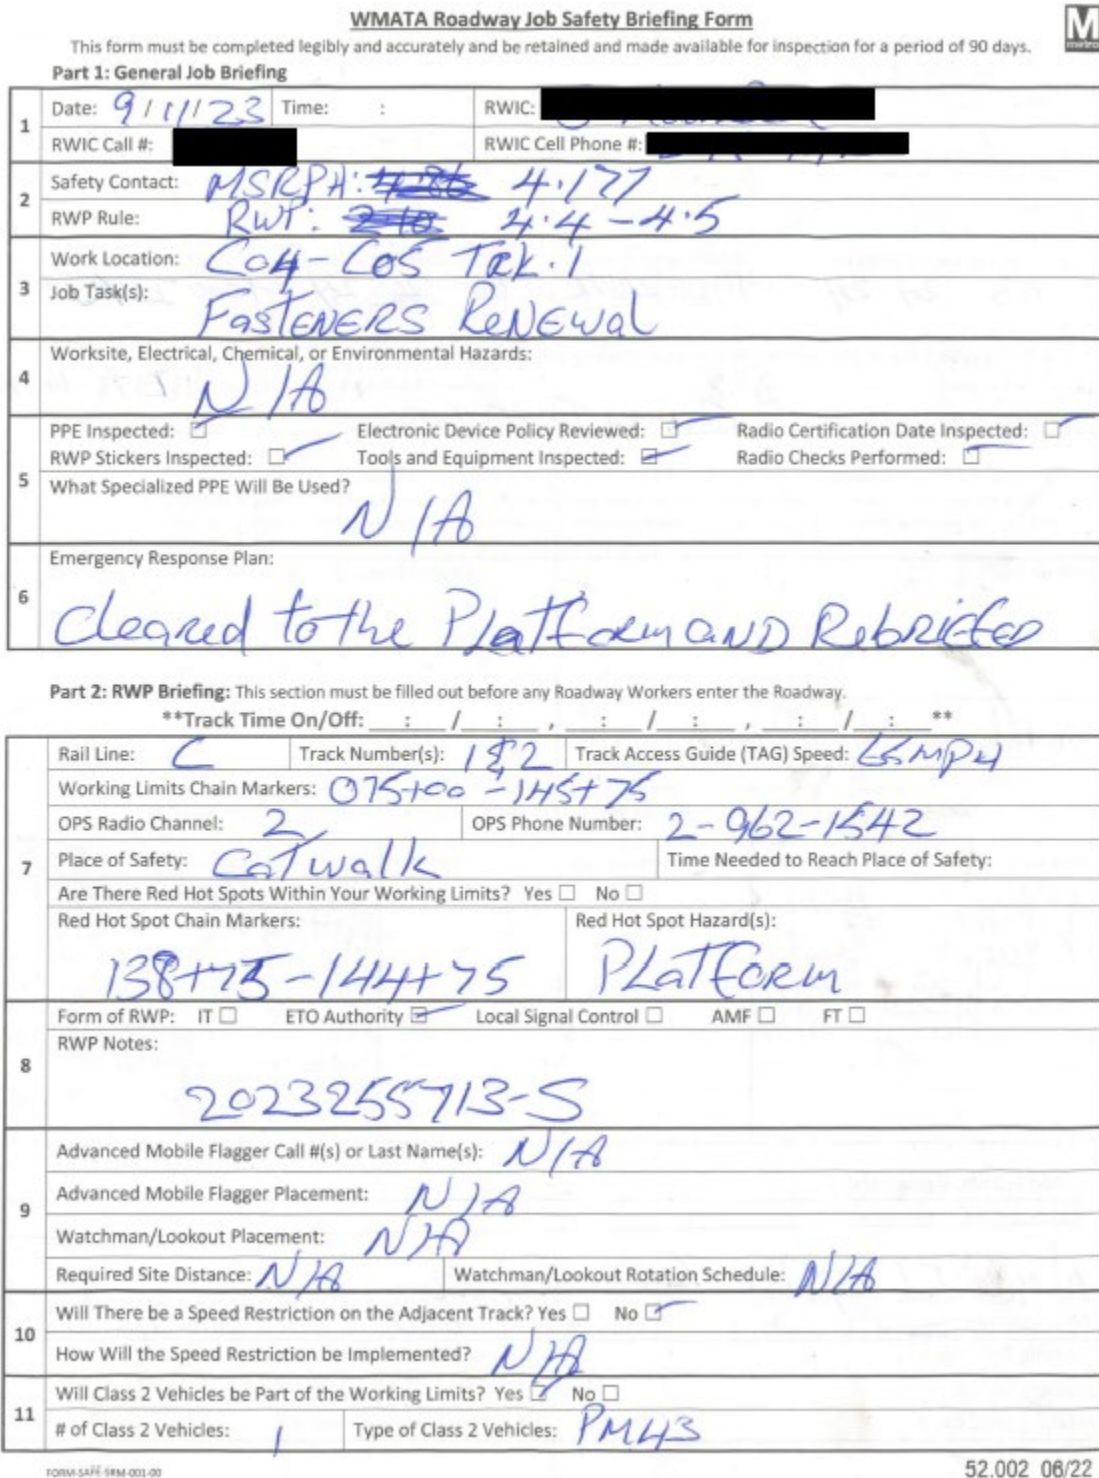 WMATA Roadway Job Safety Briefing Form
M
metro
This form must be completed legibly and accurately and be retained and made available for inspection for a period of 90 days.
Part 1: General Job Briefing
1 Date: 9/11/23 Time: : RWIC:
RWIC Call #: RWIC Cell Phone #:
2 Safety Contact: MSRPH: 4.177
RWP Rule: RWP: 4.4-4.5
3 Work Location: C04-C05 TRK.1
Job Task(s): FasTENERS RENEWal
4 Worksite, Electrical, Chemical, or Environmental Hazards:
N/A
PPE Inspected: ☑ Electronic Device Policy Reviewed: ☑ Radio Certification Date Inspected: ☑
RWP Stickers Inspected: ☑ Tools and Equipment Inspected: ☑ Radio Checks Performed: ☑
5 What Specialized PPE Will Be Used?
N/A
Emergency Response Plan:
6 Cleared to the PLatForm AND RebRIEFED
Part 2: RWP Briefing: This section must be filled out before any Roadway Workers enter the Roadway.
**Track Time On/Off: __:__ / __:__ , __:__ / __:__ , __:__ / __:__ **
Rail Line: C Track Number(s): 1&2 Track Access Guide (TAG) Speed: MPH
Working Limits Chain Markers: 075+00-145+75
OPS Radio Channel: 2 OPS Phone Number: 2-962-1542
7 Place of Safety: CaTwalk Time Needed to Reach Place of Safety:
Are There Red Hot Spots Within Your Working Limits? Yes ☐ No ☐
Red Hot Spot Chain Markers: Red Hot Spot Hazard(s):
138+75-144+75 PLaTForm
Form of RWP: IT ☐ ETO Authority ☑ Local Signal Control ☐ AMF ☐ FT ☐
8 RWP Notes:
2023255713-S
Advanced Mobile Flagger Call #(s) or Last Name(s): N/A
9 Advanced Mobile Flagger Placement: N/A
Watchman/Lookout Placement: N/A
Required Site Distance: N/A Watchman/Lookout Rotation Schedule: N/A
10 Will There be a Speed Restriction on the Adjacent Track? Yes ☐ No ☑
How Will the Speed Restriction be Implemented? N/A
11 Will Class 2 Vehicles be Part of the Working Limits? Yes ☑ No ☐
# of Class 2 Vehicles: 1 Type of Class 2 Vehicles: PM43
FORM-SAFE-SRM-001-00 52.002 06/22